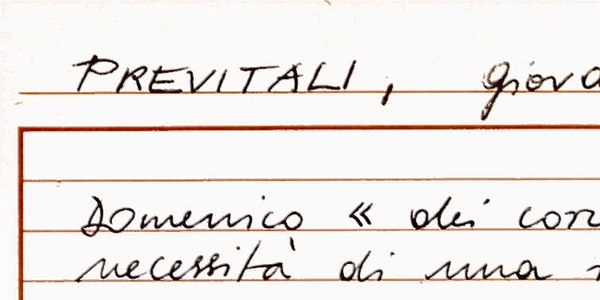 PREVITALI, giova
Domenico « dei con
necessità di una